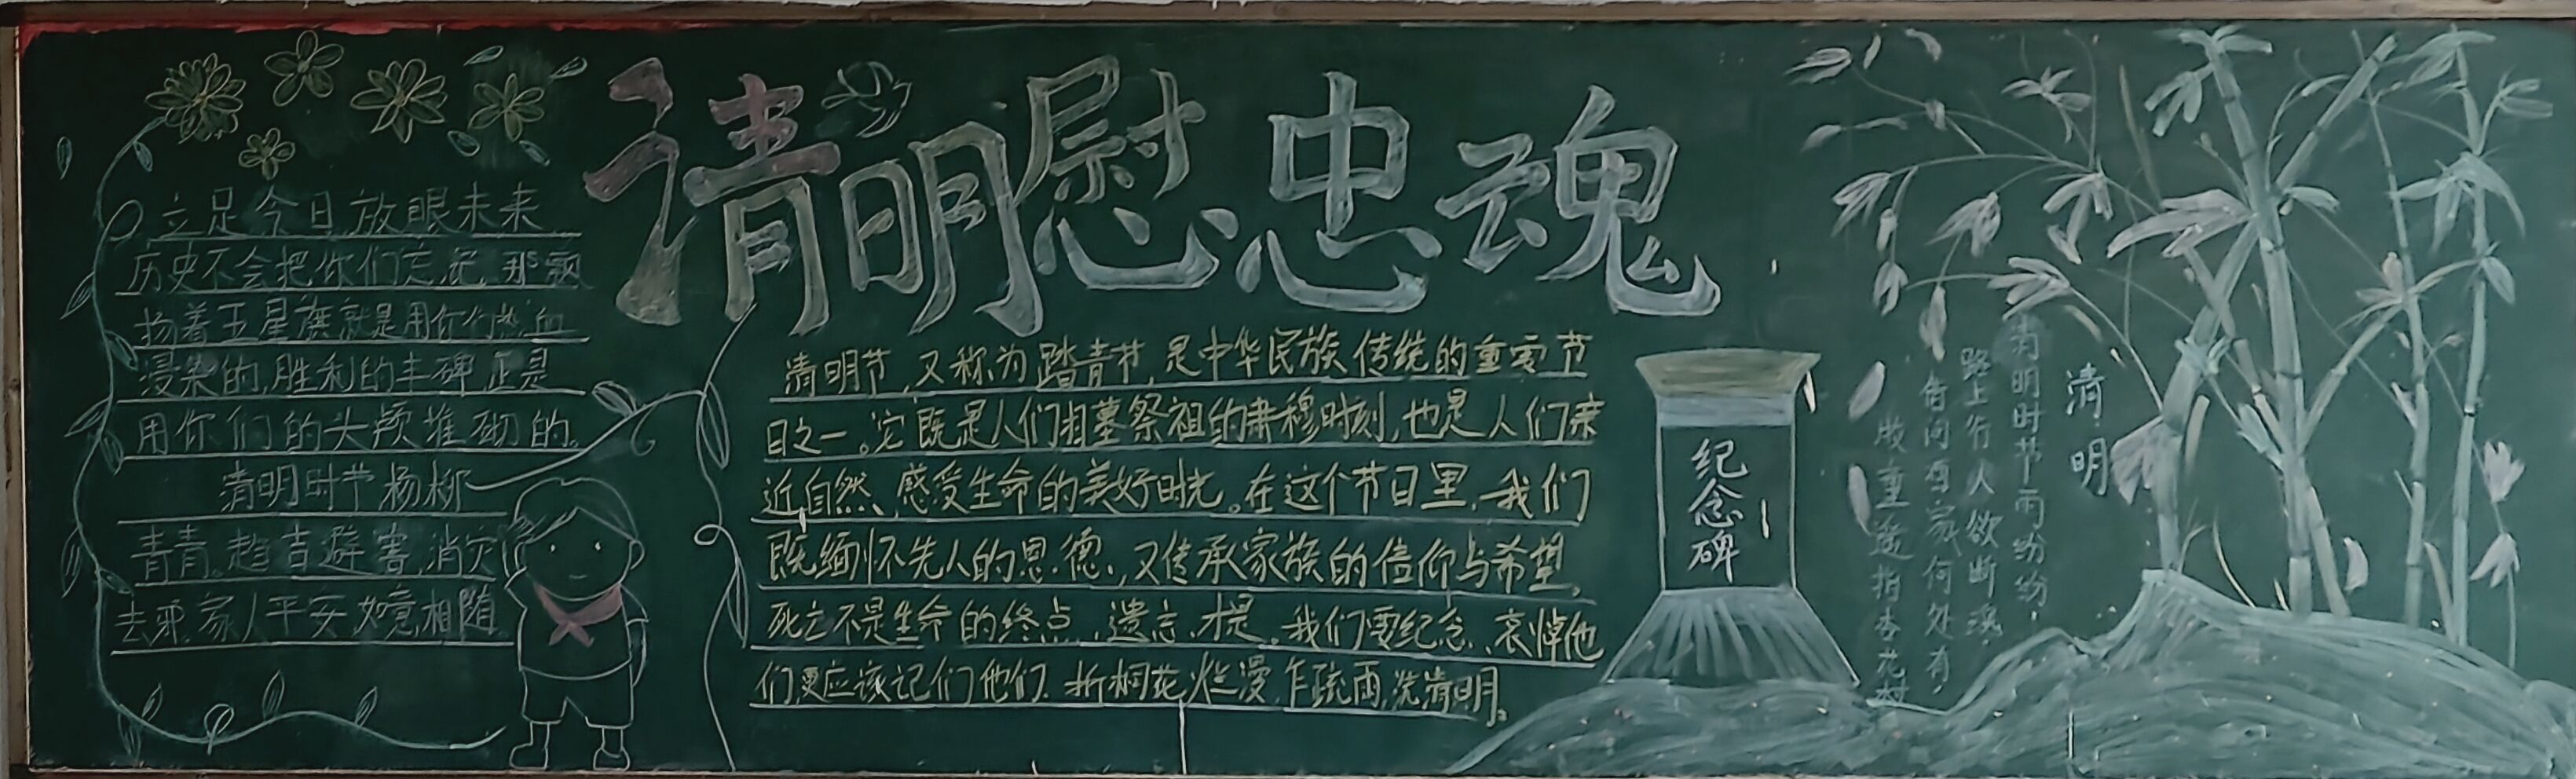 清明慰忠魂
立足今日放眼未来
历史不会把你们忘记,那飘
扬着五星旗就是用你们热血
浸染的,胜利的丰碑,正是
用你们的头颅堆砌的。
清明时节杨柳
青青,趋吉避害,消灾
去邪,家人平安如意相随
清明节,又称为踏青节,是中华民族传统的重要节
日之一。它既是人们扫墓祭祖的肃穆时刻,也是人们亲
近自然、感受生命的美好时光。在这个节日里,我们
既缅怀先人的恩德,又传承家族的信仰与希望,
死亡不是生命的终点,遗忘才是。我们要纪念、哀悼他
们更应该记们他们.折桐花烂漫,乍疏雨,洗清明。
纪念碑
清明
清明时节雨纷纷,
路上行人欲断魂。
借问酒家何处有,
牧童遥指杏花村